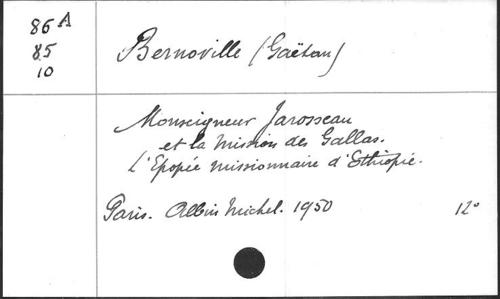 86 A
85
10
Bernoville (Gaëtan)
Monseigneur Jarosseau
et la Mission des Gallas.
L'Epopée missionnaire d'Ethiopie.
Paris. Albin Michel. 1950 12°